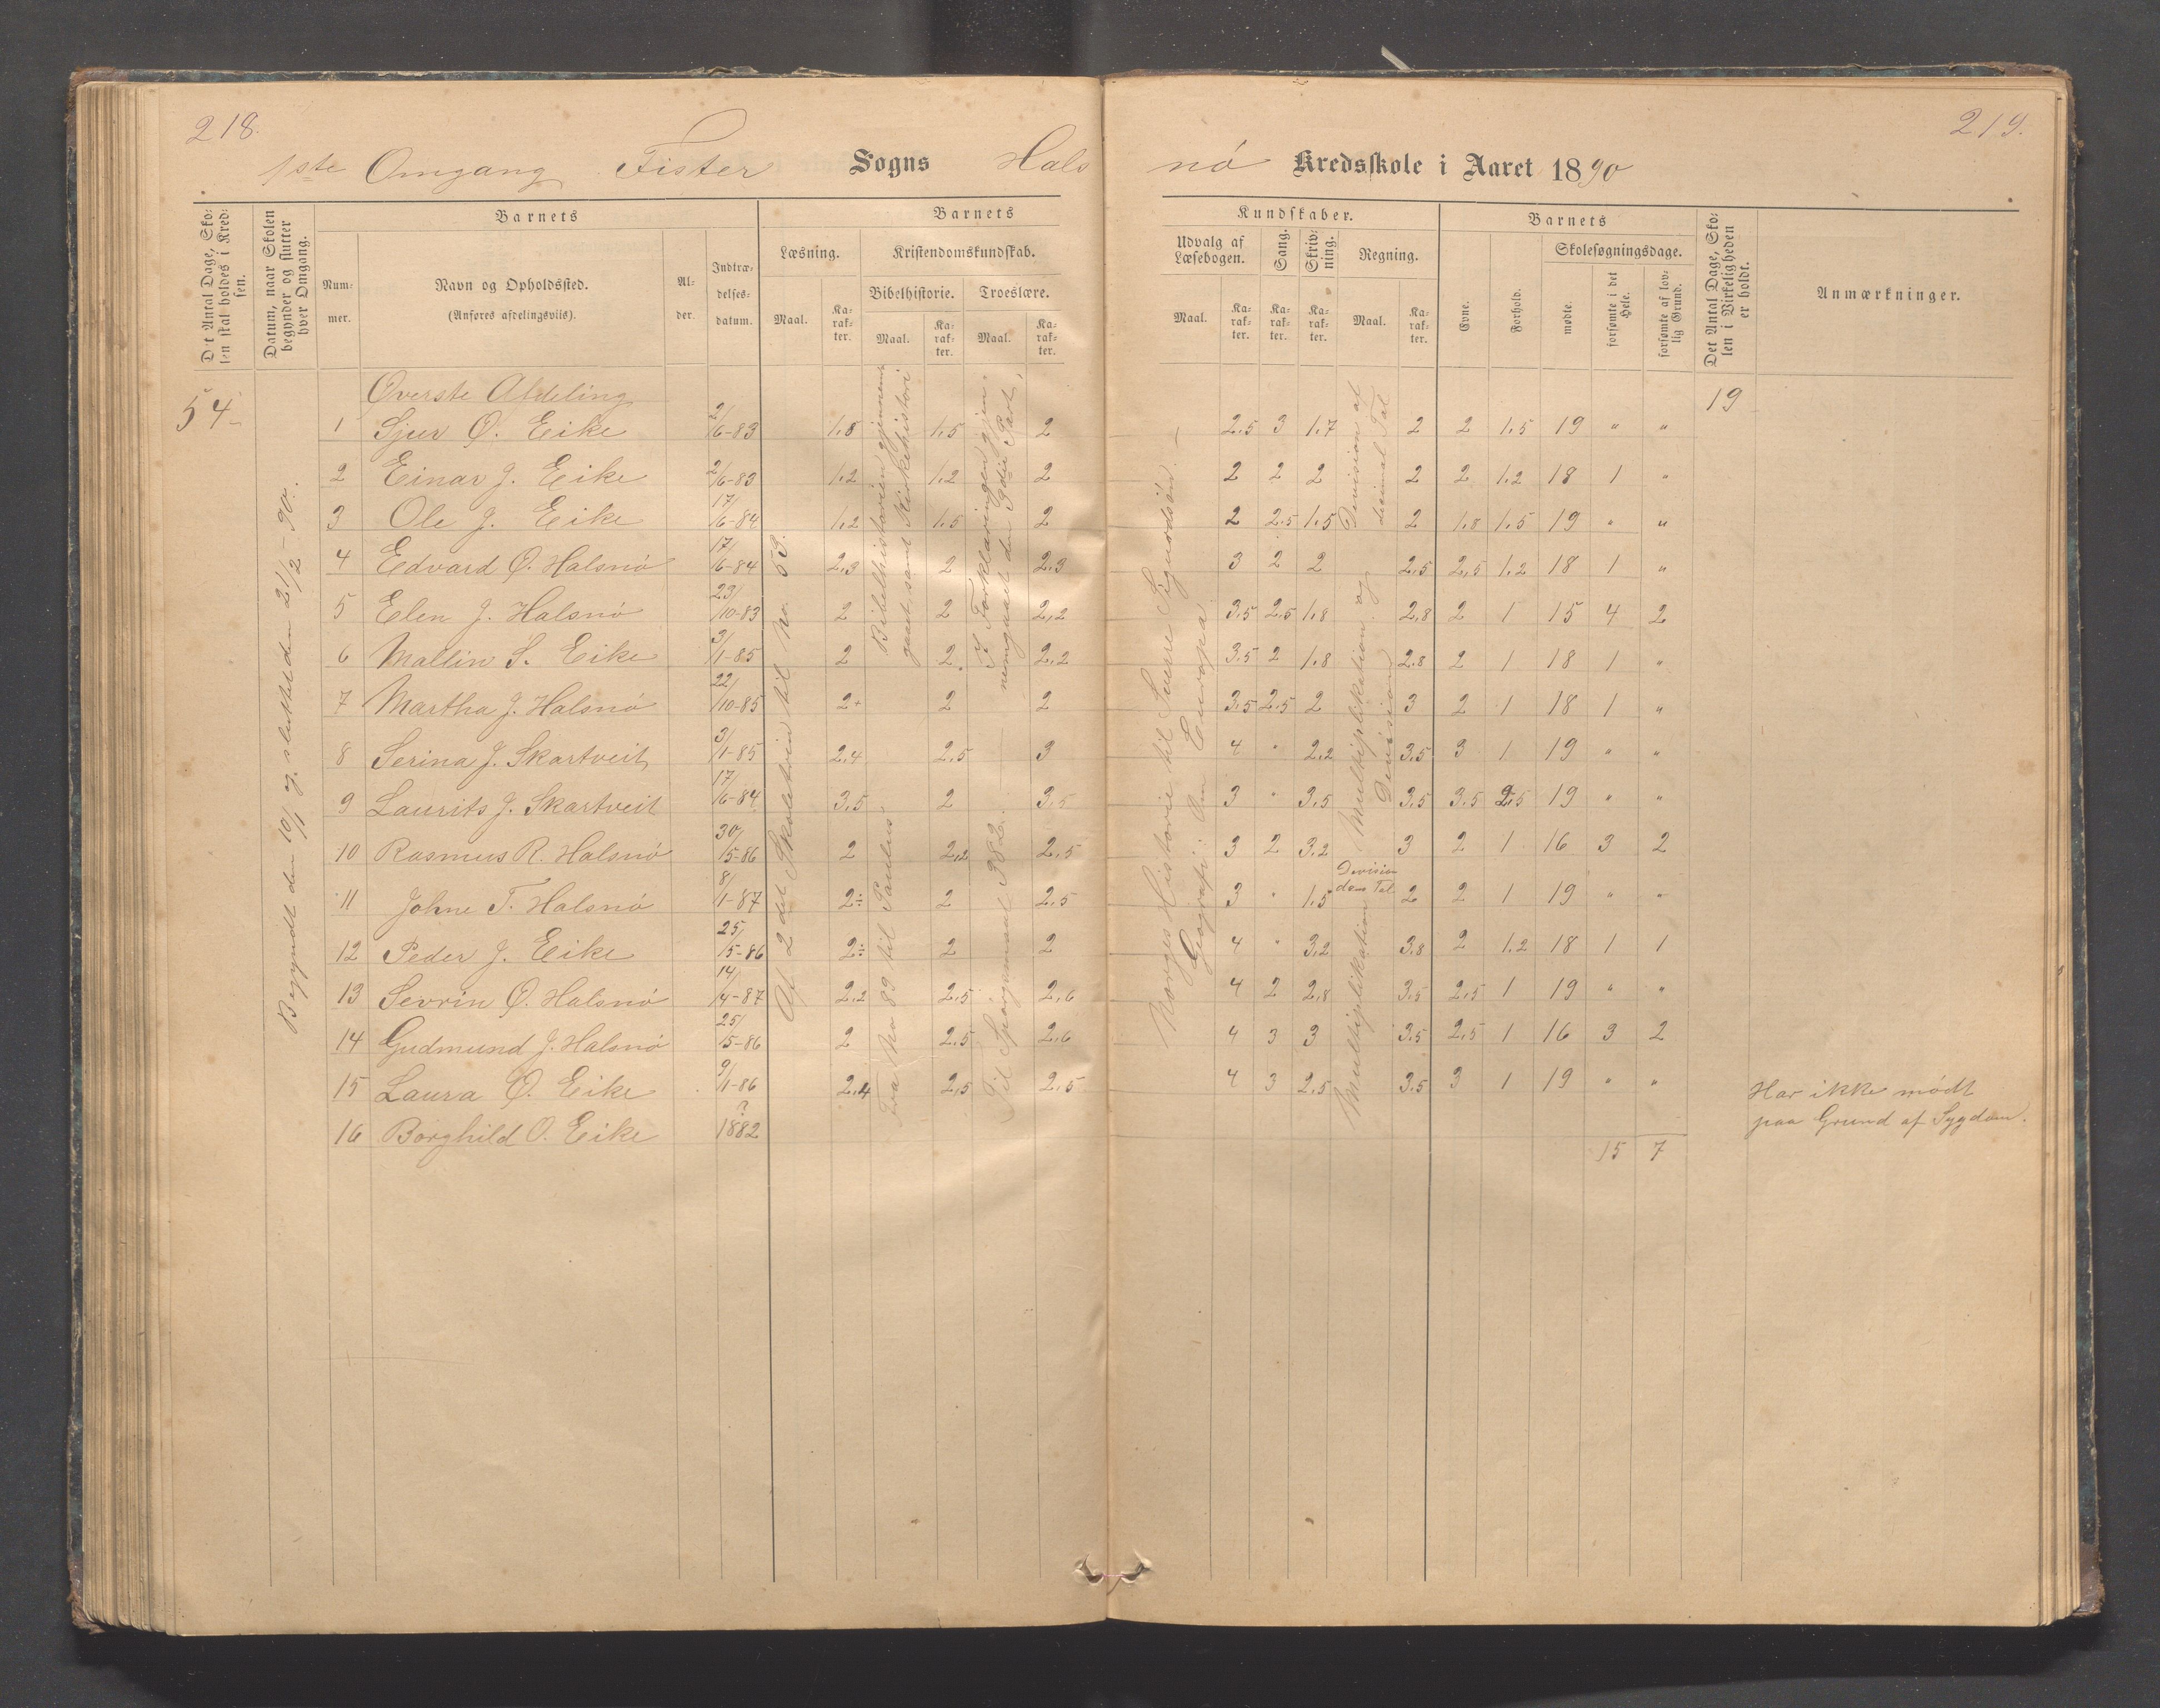 218.
219.
1ste Omgang Fister Sogns Halsnö Kredsskole i Aaret 1890
Det Antal Dage, Skolen skal holdes i Kredsen.
Datum, naar Skolen begynder og slutter hver Omgang.
Barnets
Nummer.
Navn og Opholdssted.
(Anføres afdelingsviis).
Alder.
Indtrædelsesdatum.
Barnets
Læsning.
Maal.
Karakter.
Kristendomskundskab.
Bibelhistorie.
Maal.
Karakter.
Troeslære.
Maal.
Karakter.
Kundskaber.
Udvalg af Læsebogen.
Maal.
Karakter.
Sang.
Karakter.
Skrivning.
Karakter.
Regning.
Maal.
Karakter.
Barnets
Evne.
Forhold.
Skolesøgningsdage.
mødte.
forsømte i det Hele.
forsømte af lovlig Grund.
Det Antal Dage, Skolen i Virkeligheden er holdt.
Anmærkninger.
54
Begyndt den 10/1 og sluttet den 21/2 - 90.
Øverste Afdeling
19
1 Sjur Ø. Eike 2/6-83 1,8 1,5 2 2,5 3 1,7 2 2 1,5 19 " "
2 Einar J. Eike 2/6-83 1,2 1,2 2 2 2 2 2 2 1,2 18 1 "
3 Ole J. Eike 17/6-84 1,2 1,5 2 2 2,5 1,5 2 1,8 1,5 19 " "
4 Edvard Ø. Halsnö 17/6-84 2,3 2 2,3 3 2 2 2,5 2,5 1,2 18 1 "
5 Elen J. Halsnö 23/10-83 2 2 2,2 3,5 2,5 1,8 2,8 2 1 15 4 2
6 Mallin S. Eike 3/1-85 2 2 2,2 3,5 2 1,8 2,8 2 1 18 1 "
7 Martha J. Halsnö 22/10-85 2+ 2 2 3,5 2,5 2 3 2 1 18 1 "
8 Serina J. Skartveit 3/1-85 2,4 2,5 3 4 " 2,2 3,5 3 1 19 " "
9 Laurits J. Skartveit 17/6-84 3,5 2 3,5 3 " 3,5 3,5 3,5 2,5 19 " "
10 Rasmus R. Halsnö 30/5-86 2 2,2 2,5 3 2 3,2 3 2 1 16 3 2
11 Johne T. Halsnö 8/1-87 2÷ 2 2,5 3 " 1,5 2 2 1 19 " "
12 Peder J. Eike 25/5-86 2÷ 2 2 4 " 3,2 3,8 2 1,2 18 1 1
13 Sevrin Ø. Halsnö 14/4-87 2,2 2,5 2,6 4 2 2,8 3,5 2,5 1 19 " "
14 Gudmund J. Halsnö 25/5-86 2 2,5 2,6 4 3 3 3,5 2,5 1 16 3 2
15 Laura Ø. Eike 9/1-86 2,4 2,5 2,5 4 3 2,5 3,5 3 1 19 " "
16 Borghild O. Eike ? 1882
Har ikke mödt
paa Grund af Sygdom.
15 7
Af 2det Skoletrin til No 53.
Bibelhistorien gjennemgaaet samt Kirkehistorie
Fra No 89 til Paulus.
I Forklaringen gjennemgaaet den 3die Part,
Til Spörgsmaal 382.
Norges Historie til Sverre Sigurdsön. —
Geografi: Om Europa
Division af desimal Tal
Multiplikation og Division
Division dens Tal
Multiplikation